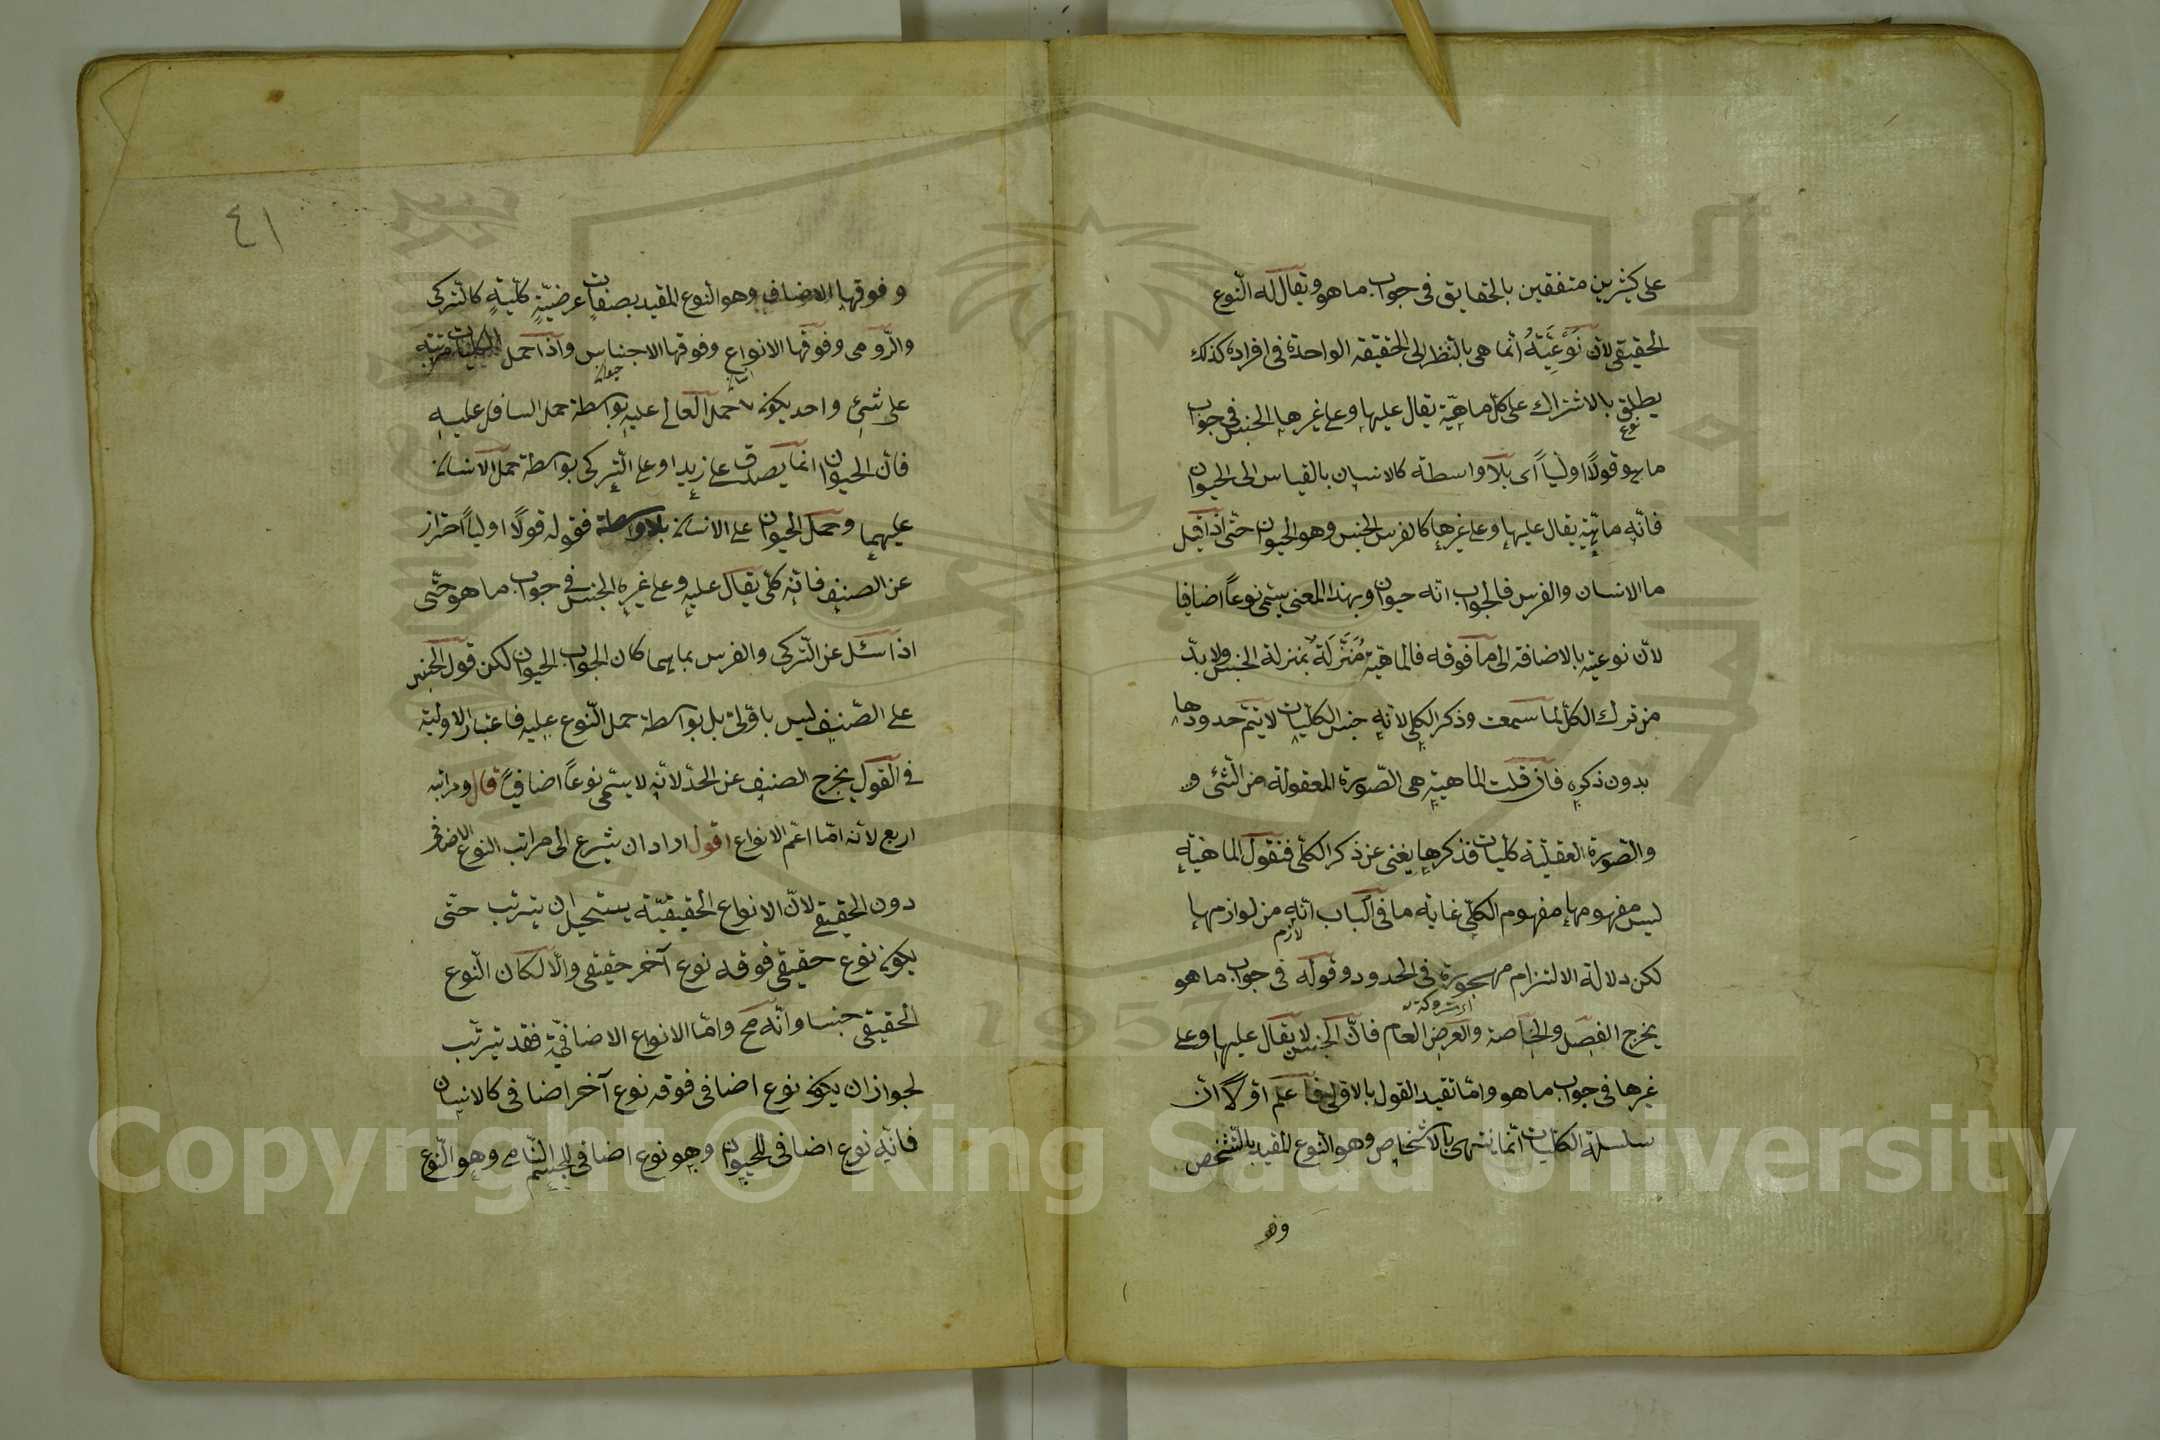 على كثيرين متفقين بالحقايق فى جواب ما هو ويقال له النّوع
الحقيقى لأن نَوْعِيَّتَهُ انّما هى بالنّظر الى الحقيقه الواحدة فى افراده كذلك
يطلق بالاشتراك على كلّ ماهيّة يقال عليها وعلى غيرها الجنس فى جواب
نوع
ما هو قولًا اوليّاً اى بلا واسطة كالانسان بالقياس الى الحيوان
فانّه ماهيّة يقال عليها وعلى غيرها كالفرس الجنس وهو الحيوان حتّى اذا قيل
ما الانسان والفرس فالجواب انّه حيوان وبهذا المعنى يسمّى نوعاً اضافيا
لأنّ نوعيته بالاضافة الى ما فوقه فالماهيّة مُنَزَّلَةٌ بمنزلة الجنس ولا بدّ
من ترك الكلّ لما سمعت وذكر الكلى لأنه جنس الكليّات لا يتمّ حدودها
بدون ذكره فان قلت الماهية هى الصّورة المعقولة من الشئ و
والصّورة العقليّة كليات فذكرها يغنى عن ذكر الكلّى فنقول الماهيّة
ليس مفهومها مفهوم الكلّى غاية ما فى الباب انّه من لوازمها
لازم
لكن دلالة الالتزام مهجورة فى الحدود وقوله فى جواب ما هو
اى متروكة
يخرج الفصل والخاصة والعرض العام فانّ الجنس لا يقال عليها وعلى
غيرها فى جواب ما هو وامّا تقييد القول بالاوّلى فاعلم اوّلًا انّ
سلسلة الكليات انّما ينتهى بالاشخاص وهو النّوع المقيد بالتّشخص
وفو
٤١
وفوقها الاصناف وهو النوع المقيد بصفات عرضيّةٍ كلّيّةٍ كالتّركى
والرّومى وفوقها الانواع وفوقها الاجناس واذا حمل الكليات مرتبة
على شئ واحد يكون حمل العالى عليه بواسطة حمل السافل عليه
فانّ الحيوان انما يصدق على زيد او على التّركى بواسطة حمل الانسان
عليهما وحمل الحيوان على الانسان بلا واسطة فقوله قولًا اوليّاً احتراز
عن الصنف فانّه كلّى يقال عليه وعلى غيره الجنس فى جواب ما هو حتّى
اذا سئل عن التّركى والفرس بما هما كان الجواب الحيوان لكن قول الجنس
على الصّنف ليس باوّلىّ بل بواسطة حمل النّوع عليه فاعتبار الاولية
فى القول يخرج الصنف عن الحدّ لانّه لا يسمّى نوعاً اضافيّاً قال ومراتبه
اربع لأنه امّا اعّم الانواع اقول اراد ان يشرع الى مراتب النوع الاضافى
دون الحقيقى لانّ الانواع الحقيقيّة يستحيل ان يترتب حتّى
يكون نوع حقيقى فوقه نوع آخر حقيقى والّا لكان النّوع
الحقيقى جنسا وانّه مح وامّا الانواع الاضافيّة فقد يترتّب
لجواز ان يكون نوع اضافى فوقه نوع آخر اضافى كالانسان
فانّه نوع اضافى للحيوان وهو نوع اضافى للجسم النّامى وهو النّوع
Copyright © King Saud University
1957